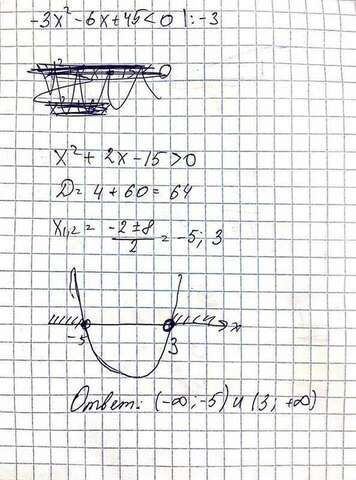 -3x² - 6x + 45 < 0 |: -3
x² + 2x - 15 > 0
D = 4 + 60 = 64
x₁,₂ = (-2 ± 8)/2 = -5; 3
-5 3 x
Ответ: (-∞; -5) и (3; +∞)